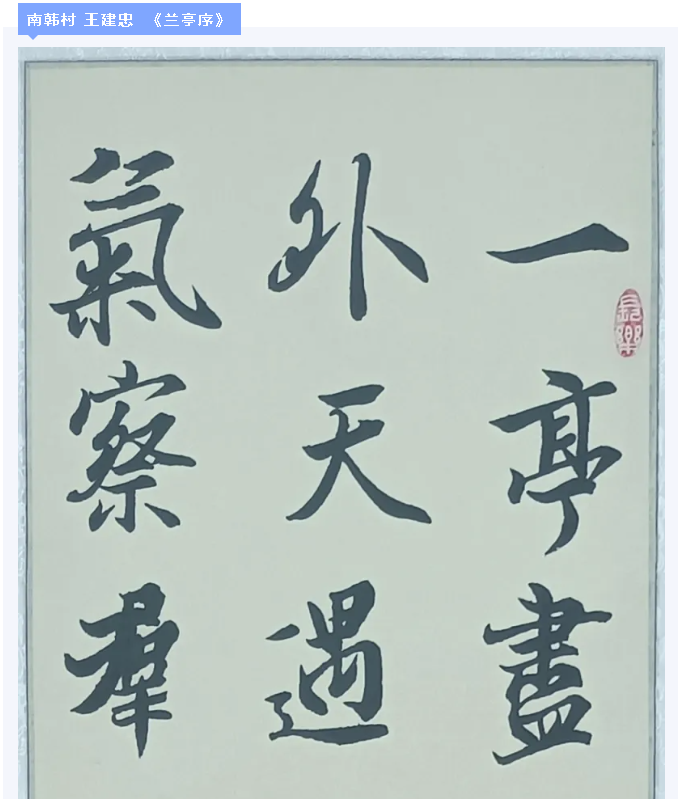 南韩村 王建忠 《兰亭序》
一亭盡
外天遇
氣察羣